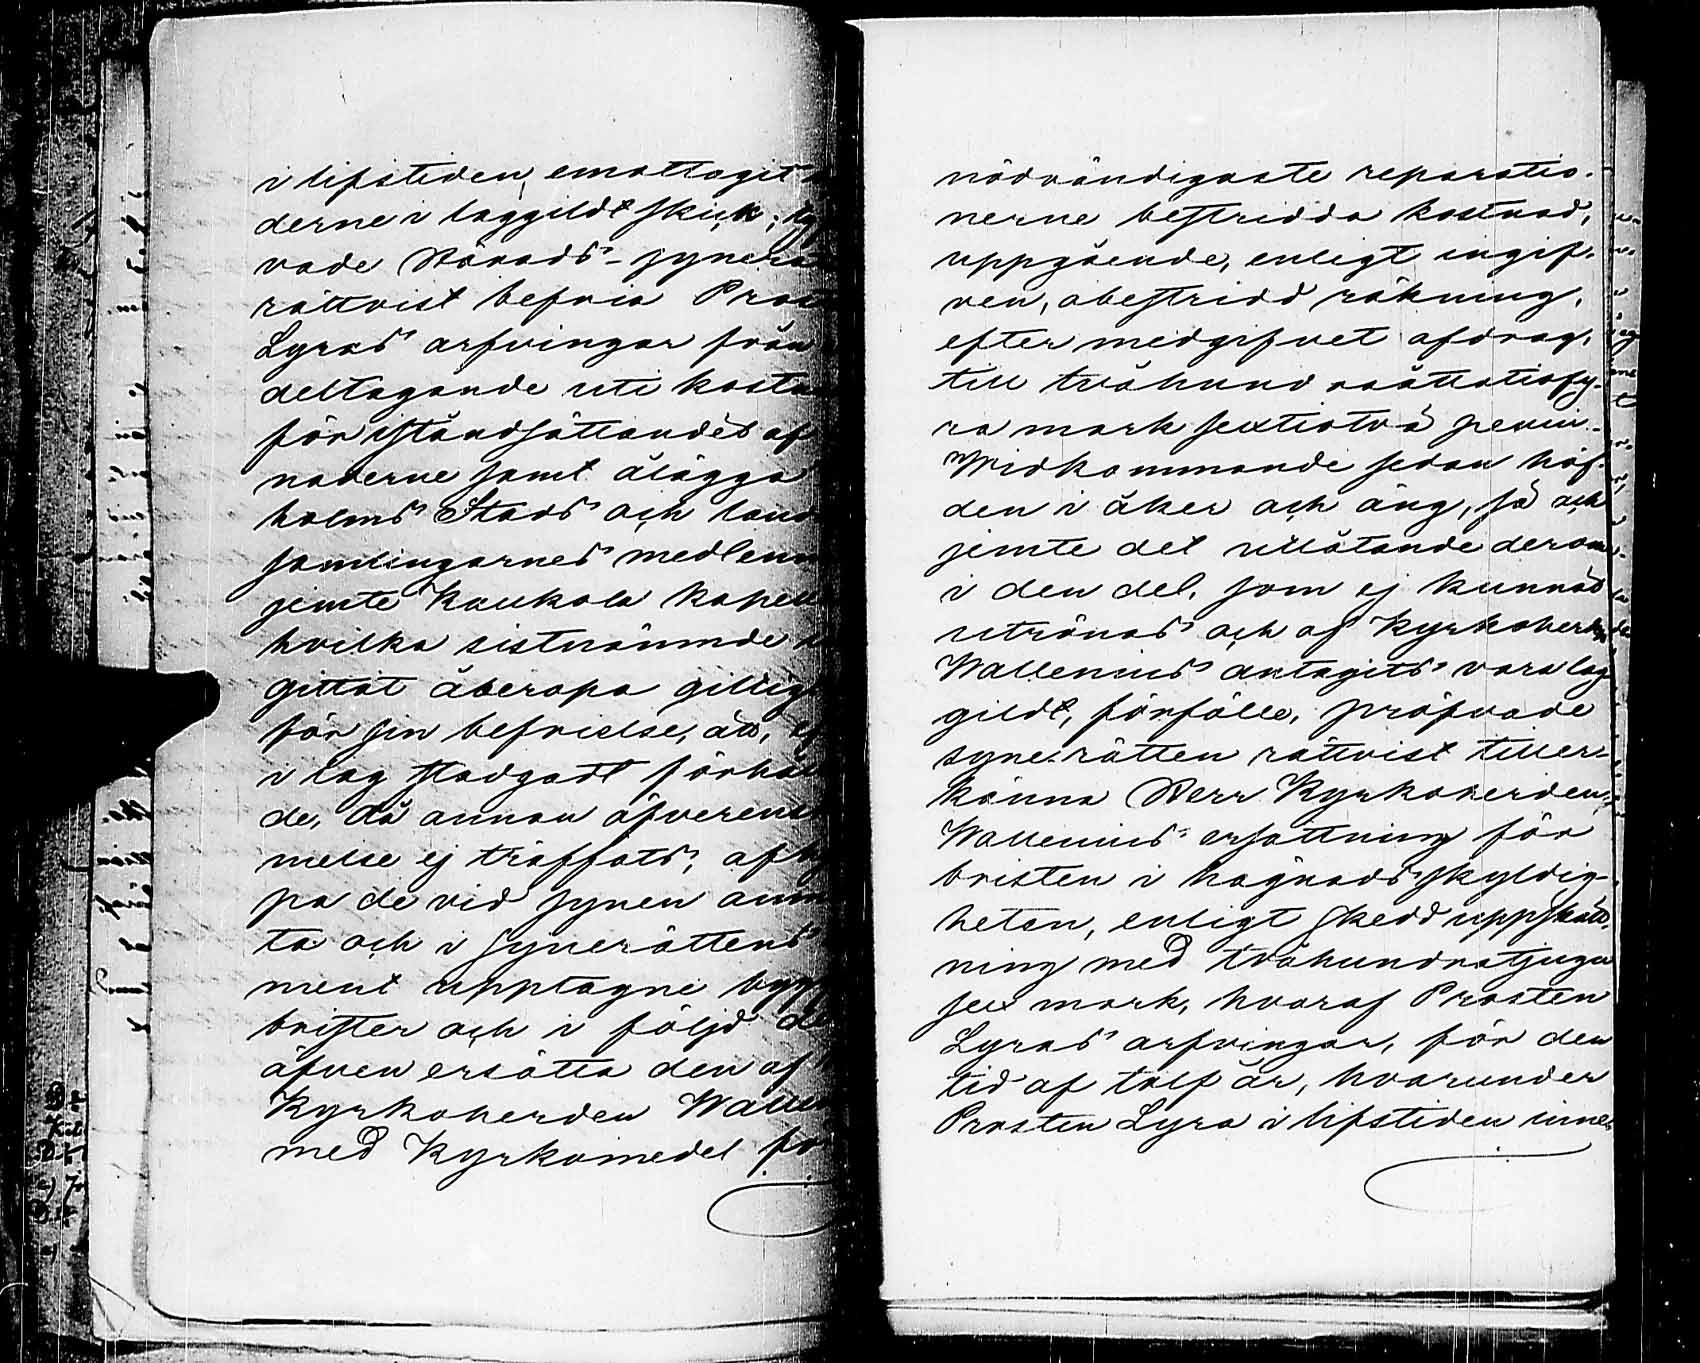 i lifstiden, emottagit
derne i laggildt skick;
vade Härads-synerä
rättvist befria Pros
Lyras arfvingar från
deltagande uti kostn
för iståndsättandet af
naderne samt ålägga
holms Stads och land
samlingarnes medlem
jemte Kaukola kapell
hvilka sistnämnde
gittat åberopa gillig
för sin befrielse, att,
i lag stadgadt förhål
de, då annan öfverens
melse ej träffats, af
pa de vid synen anm
ta och i Synerättens
ment upptagne bygg
brister och i följd de
äfven ersätta den af
Kyrkoherden Walle
med Kyrkomedel för
nödvändigaste reparatio-
nerne bestridda kostnad,
uppgående, enligt ingif-
ven, obestridd räkning,
efter medgifvet afdrag,
till tvåhundraåttatiofy-
ra mark sextiotvå penni.
Widkommande sedan häf-
den i åker och äng, så och
jemte det utlåtande derom
i den del, som ej kunnat
utrönas och af Kyrkoherden
Wallenius antagits vara lag-
gildt, förfölle, pröfvade
syne-rätten rättvist tiller-
känna Herr Kyrkoherden
Wallenius ersättning för
bristen i hägnadsskyldig-
heten, enligt skedd uppskatt-
ning med tvåhundratjugu
sex mark, hvaraf Prosten
Lyras arfvingar, för den
tid af tolf år, hvarunder
Prosten Lyra i lifstiden inne-